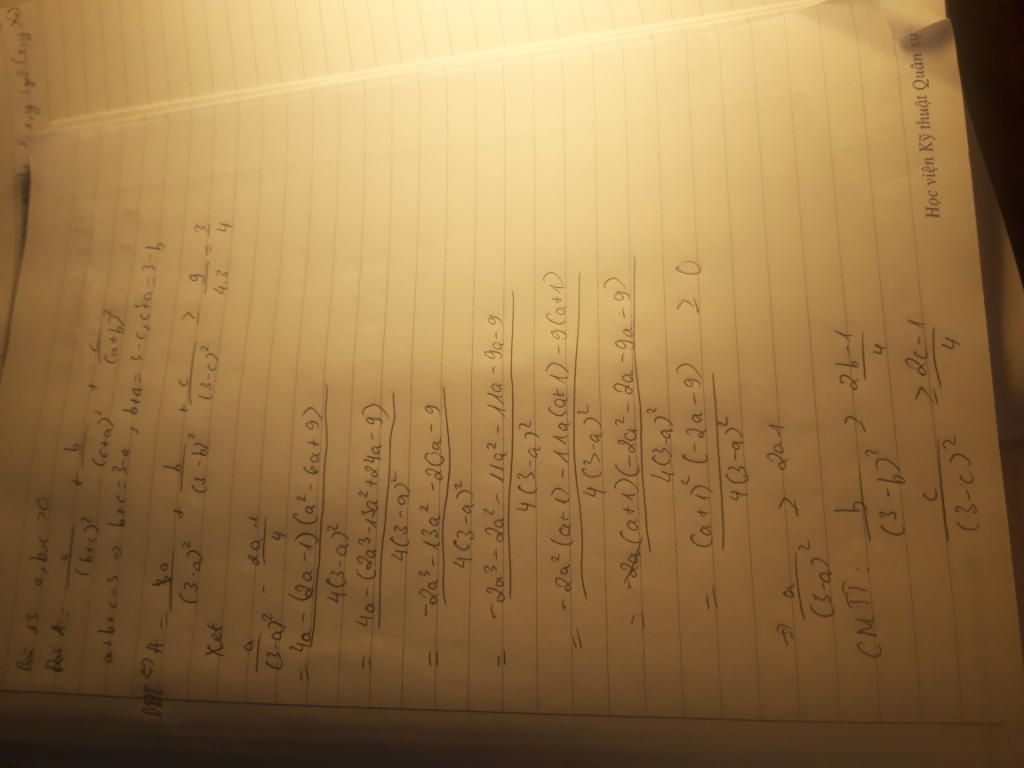 Bài 13. a, b, c > 0
Đặt A = a/(b+c)² + b/(c+a)² + c/(a+b)²
a+b+c=3 ⇒ b+c=3-a, b+a=3-c, c+a=3-b
⇔ A = a/(3-a)² + b/(3-b)² + c/(3-c)² ≥ 9/4.3 = 3/4
Xét
a/(3-a)² - 2a-1/4
= 4a-(2a-1)(a²-6a+9)/4(3-a)²
= 4a-(2a³-13a²+24a-9)/4(3-a)²
= -2a³-13a²-20a-9/4(3-a)²
= -2a³-2a²-11a²-11a-9a-9/4(3-a)²
= -2a²(a+1)-11a(a+1)-9(a+1)/4(3-a)²
= (a+1)(-2a²-2a-9a-9)/4(3-a)²
= (a+1)²(-2a-9)/4(3-a)² ≥ 0
⇒ a/(3-a)² ≥ 2a-1
CMTT: b/(3-b)² ≥ 2b-1/4
c/(3-c)² ≥ 2c-1/4
Học viện Kỹ thuật Quân sự